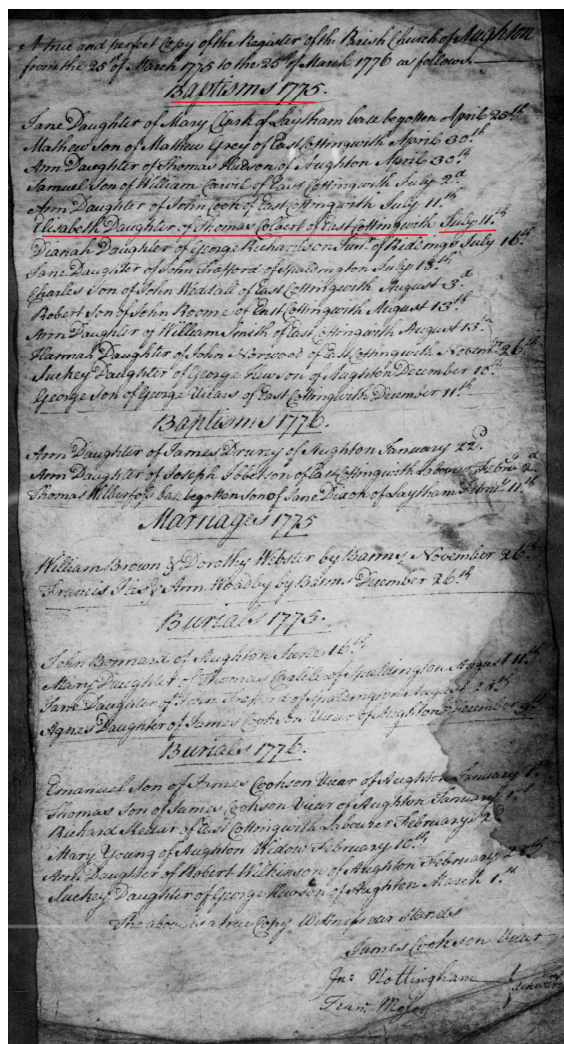 A true and perfect Copy of the Register of the Parish Church of Aughton
from the 25th of March 1775 to the 25th of March 1776 as follows.
Baptisms 1775.
Jane Daughter of Mary Clark of Laytham base begotten April 25th
Mathew Son of Mathew Grey of East Cottingwith April 30th
Ann Daughter of Thomas Hudson of Aughton April 30th
Samuel Son of William Carvil of East Cottingwith July 2d
Ann Daughter of John Cook of East Cottingwith July 11th
Elisabeth Daughter of Thomas Colbert of East Cottingwith July 11th
Dianah Daughter of George Richardson Junr of Ridings July 16th
Jane Daughter of John of Spaldington July 18th
Charles Son of John Wedall of East Cottingwith August 3d
Robert Son of John Roome of East Cottingwith August 13th
Ann Daughter of William Smith of East Cottingwith August 13th
Hannah Daughter of John Norwood of East Cottingwith Novembr 26th
Suckey Daughter of George Hewson of Aughton December 10th
George Son of George of East Cottingwith December 11th
Baptisms 1776.
Ann Daughter of James Drurey of Aughton January 22d
Ann Daughter of Joseph Ibbetson of East Cottingwith Labourer Febru 2d
Thomas Wilberfoss base begotten son of Jane Dixon of Laytham Febru 11th
Marriages 1775
William Brown & Dorothy Webster by Banns November 26th
Francis & Ann by Banns December 26th
Burials 1775.
John Bonnard of Aughton June 16th
Mary Daughter of Thomas Carlile of Spaldington August 11th
Jane Daughter of John of Spaldington August 24th
Agnes Daughter of James Cookson Vicar of Aughton December 9th
Burials 1776.
Emanuel Son of James Cookson Vicar of Aughton January 1st
Thomas Son of James Cookson Vicar of Aughton January 1st
Richard of East Cottingwith Labourer February 2d
Mary Young of Aughton Widow February 10th
Ann Daughter of Robert Wilkinson of Aughton February
Suckey Daughter of George Hewson of Aughton March 1st
The above is a true Copy Witness our Hands
James Cookson Vicar
Jno Nottingham
Fran